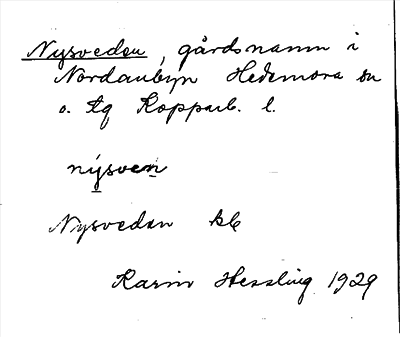 Nysvedan, gårdsnamn i
Nordanbyn Hedemora sn
o. tg Kopparb. l.
nýsven
Nysvedan kb
Karin Hessling 1929